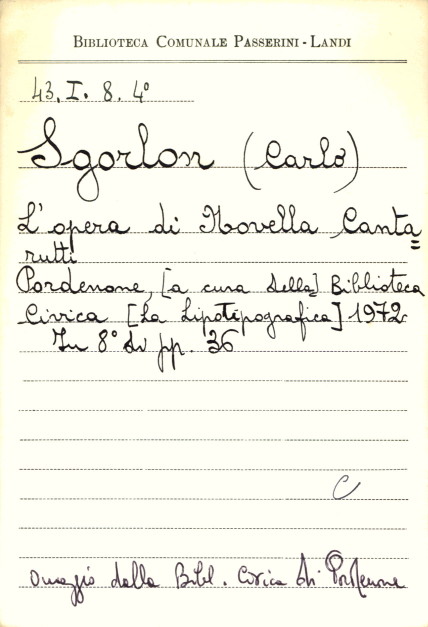 BIBLIOTECA COMUNALE PASSERINI - LANDI
43. I. 8. 4°
Sgorlon (Carlo)
L'opera di Novella Canta=
rutti
Pordenone, [a cura della] Biblioteca
Civica [La Lipotipografica] 1972
In 8° di pp. 36
C
Omaggio della Bibl. Civica di Pordenone